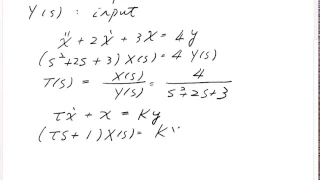 Y(s) : input
ẍ + 2ẋ + 3x = 4y
(s² + 2s + 3) X(s) = 4 Y(s)
T(s) = X(s)/Y(s) = 4/(s² + 2s + 3)
τẋ + x = Ky
(τs + 1) X(s) = K